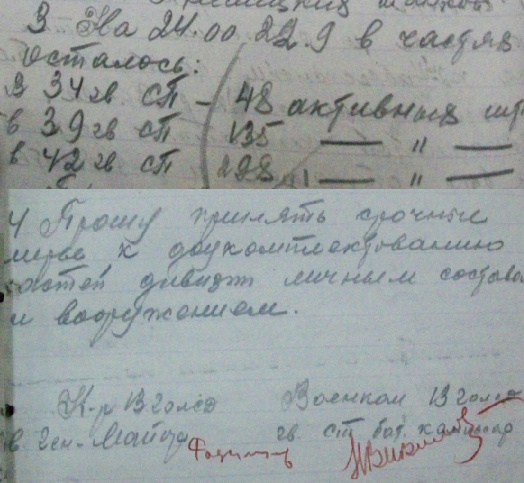 3 На 24.00 22.9 в частях
осталось:
в 34 гв сп - 48 активных шт
в 39 гв сп 135 — " —
в 42 гв сп 298 — " —
4 Прошу принять срочные
меры к доукомплектованию
частей дивизии личным состава
и вооружением.
К-р 13 гвсд Военком 13 гвсд
гв. ген. майор гв. ст. бат. комиссар